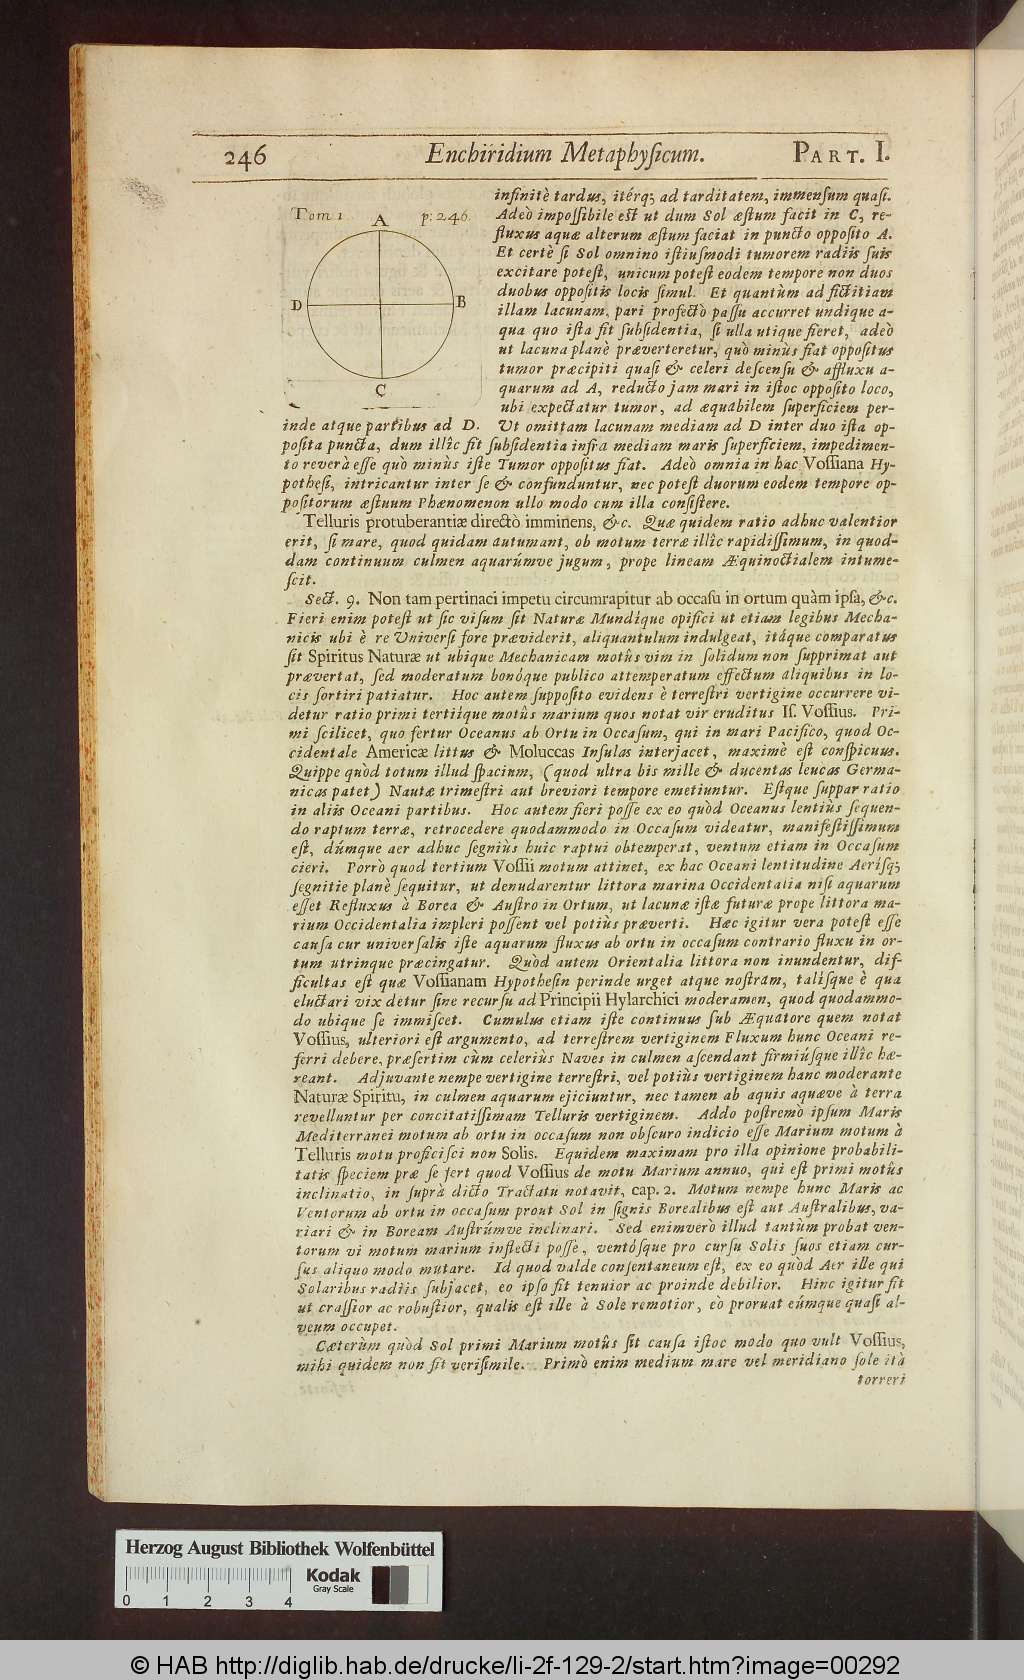 246 Enchiridium Metaphysicum. PART. I.
Tom 1 p: 246.
A
D
B
C
infinitè tardus, itérq; ad tarditatem, immensum quasi.
Adeò impossibile est ut dum Sol æstum facit in C, re-
fluxus aquæ alterum æstum faciat in puncto opposito A.
Et certè si Sol omnino istiusmodi tumorem radiis suis
excitare potest, unicum potest eodem tempore non duos
duobus oppositis locis simul. Et quantùm ad fictitiam
illam lacunam, pari profectò passu accurret undique a-
qua quo ista fit subsidentia, si ulla utique fieret, adeò
ut lacuna planè præverteretur, quò minùs fiat oppositus
tumor præcipiti quasi & celeri descensu & affluxu a-
quarum ad A, reducto jam mari in istoc opposito loco,
ubi expectatur tumor, ad æquabilem superficiem per-
inde atque partibus ad D. Ut omittam lacunam mediam ad D inter duo ista op-
posita puncta, dum illîc fit subsidentia infra mediam maris superficiem, impedimen-
to reverà esse quò minùs iste Tumor oppositus fiat. Adeò omnia in hac Vossiana Hy-
pothesi, intricantur inter se & confunduntur, nec potest duorum eodem tempore op-
positorum æstuum Phænomenon ullo modo cum illa consistere.
Telluris protuberantiæ directò imminens, &c. Quæ quidem ratio adhuc valentior
erit, si mare, quod quidam autumant, ob motum terræ illîc rapidissimum, in quod-
dam continuum culmen aquarúmve jugum, prope lineam Æquinoctialem intume-
scit.
Sect. 9. Non tam pertinaci impetu circumrapitur ab occasu in ortum quàm ipsa, &c.
Fieri enim potest ut sic visum sit Naturæ Mundíque opifici ut etiam legibus Mecha-
nicis ubi è re Universi fore præviderit, aliquantulum indulgeat, itáque comparatus
sit Spiritus Naturæ ut ubique Mechanicam motûs vim in solidum non supprimat aut
prævertat, sed moderatum bonóque publico attemperatum effectum aliquibus in lo-
cis sortiri patiatur. Hoc autem supposito evidens è terrestri vertigine occurrere vi-
detur ratio primi tertiíque motûs marium quos notat vir eruditus Is. Vossius. Pri-
mi scilicet, quo fertur Oceanus ab Ortu in Occasum, qui in mari Pacifico, quod Oc-
cidentale Americæ littus & Moluccas Insulas interjacet, maximè est conspicuus.
Quippe quòd totum illud spacium, (quod ultra bis mille & ducentas leucas Germa-
nicas patet) Nautæ trimestri aut breviori tempore emetiuntur. Estque suppar ratio
in aliis Oceani partibus. Hoc autem fieri posse ex eo quòd Oceanus lentiùs sequen-
do raptum terræ, retrocedere quodammodo in Occasum videatur, manifestissimum
est, dúmque aer adhuc segniùs huic raptui obtemperat, ventum etiam in Occasum
cieri. Porrò quod tertium Vossii motum attinet, ex hac Oceani lentitudine Aerísq;
segnitie planè sequitur, ut denudarentur littora marina Occidentalia nisi aquarum
esset Refluxus à Borea & Austro in Ortum, ut lacunæ istæ futuræ prope littora ma-
rium Occidentalia impleri possent vel potiùs præverti. Hæc igitur vera potest esse
causa cur universalis iste aquarum fluxus ab ortu in occasum contrario fluxu in or-
tum utrinque præcingatur. Quòd autem Orientalia littora non inundentur, dif-
ficultas est quæ Vossianam Hypothesin perinde urget atque nostram, talísque è qua
eluctari vix detur sine recursu ad Principii Hylarchici moderamen, quod quodammo-
do ubique se immiscet. Cumulus etiam iste continuus sub Æquatore quem notat
Vossius, ulteriori est argumento, ad terrestrem vertiginem Fluxum hunc Oceani re-
ferri debere, præsertim cùm celeriùs Naves in culmen ascendant firmiúsque illîc hæ-
reant. Adjuvante nempe vertigine terrestri, vel potiùs vertiginem hanc moderante
Naturæ Spiritu, in culmen aquarum ejiciuntur, nec tamen ab aquis aquæve à terra
revelluntur per concitatissimam Telluris vertiginem. Addo postremò ipsum Maris
Mediterranei motum ab ortu in occasum non obscuro indicio esse Marium motum à
Telluris motu proficisci non Solis. Equidem maximam pro illa opinione probabili-
tatis speciem præ se fert quod Vossius de motu Marium annuo, qui est primi motûs
inclinatio, in suprà dicto Tractatu notavit, cap. 2. Motum nempe hunc Maris ac
Ventorum ab ortu in occasum prout Sol in signis Borealibus est aut Australibus, va-
riari & in Boream Austrúmve inclinari. Sed enimverò illud tantùm probat ven-
torum vi motum marium inflecti posse, ventósque pro cursu Solis suos etiam cur-
sus aliquo modo mutare. Id quod valde consentaneum est, ex eo quòd Aer ille qui
Solaribus radiis subjacet, eo ipso fit tenuior ac proinde debilior. Hinc igitur fit
ut crassior ac robustior, qualis est ille à Sole remotior, eò proruat eúmque quasi al-
veum occupet.
Cæterùm quòd Sol primi Marium motûs sit causa istoc modo quo vult Vossius,
mihi quidem non fit verisimile. Primò enim medium mare vel meridiano sole ità
torreri
Herzog August Bibliothek Wolfenbüttel
Kodak
Gray Scale
0 1 2 3 4
© HAB http://diglib.hab.de/drucke/li-2f-129-2/start.htm?image=00292